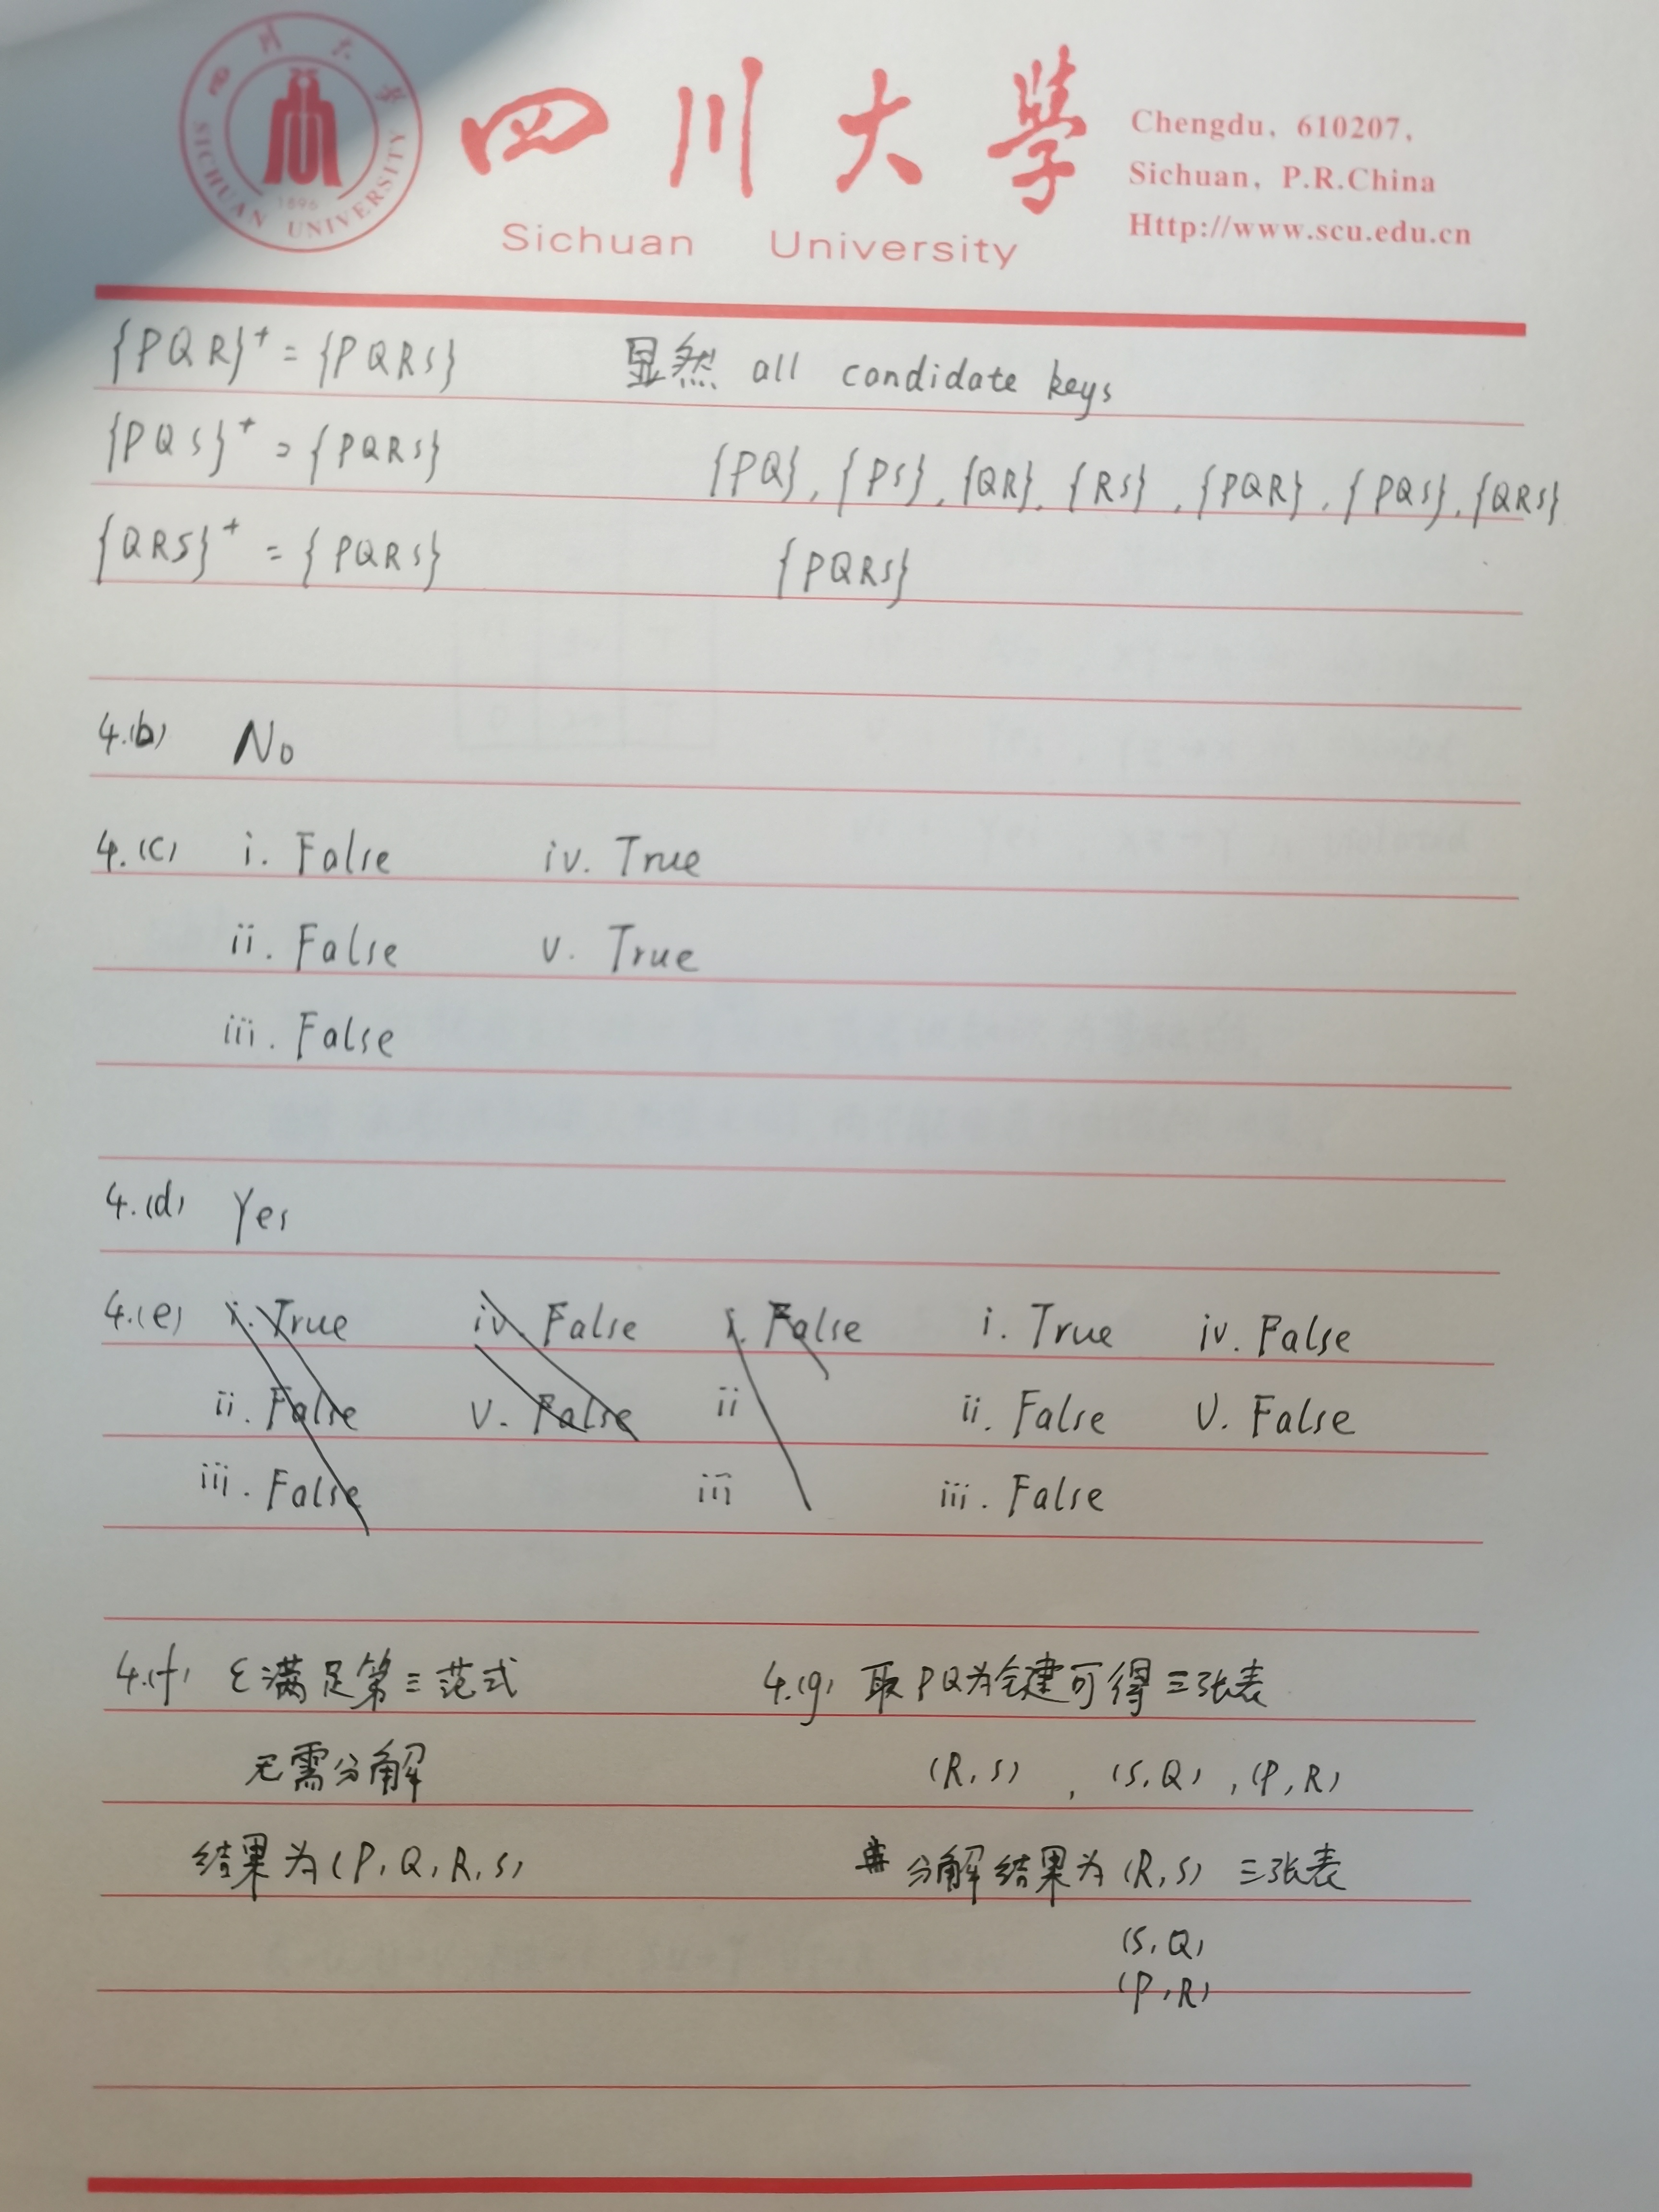 四川大學
SICHUAN UNIVERSITY
1896
四 川 大 學
Sichuan University
Chengdu, 610207,
Sichuan, P.R.China
Http://www.scu.edu.cn
{PQR}⁺ = {PQRS} 显然 all candidate keys
{PQS}⁺ = {PQRS} {PQ}, {PS}, {QR}, {RS}, {PQR}, {PQS}, {QRS}
{QRS}⁺ = {PQRS} {PQRS}
4.(b) No
4.(c) i. False iv. True
ii. False v. True
iii. False
4.(d) Yes
4.(e) i. True iv. False i. False i. True iv. False
ii. False v. False ii ii. False v. False
iii. False iii iii. False
4.(f) ε满足第三范式 4.(g) 取PQ为主建可得三张表
无需分解 (R,S), (S,Q), (P,R)
结果为(P,Q,R,S) 分解结果为(R,S) 三张表
(S,Q)
(P,R)